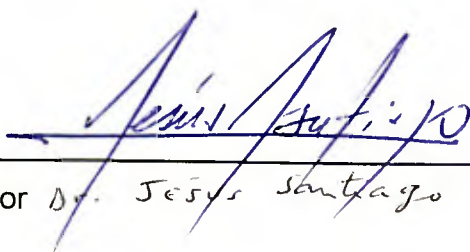 Jesús Santiago
or Dr. Jesús Santiago